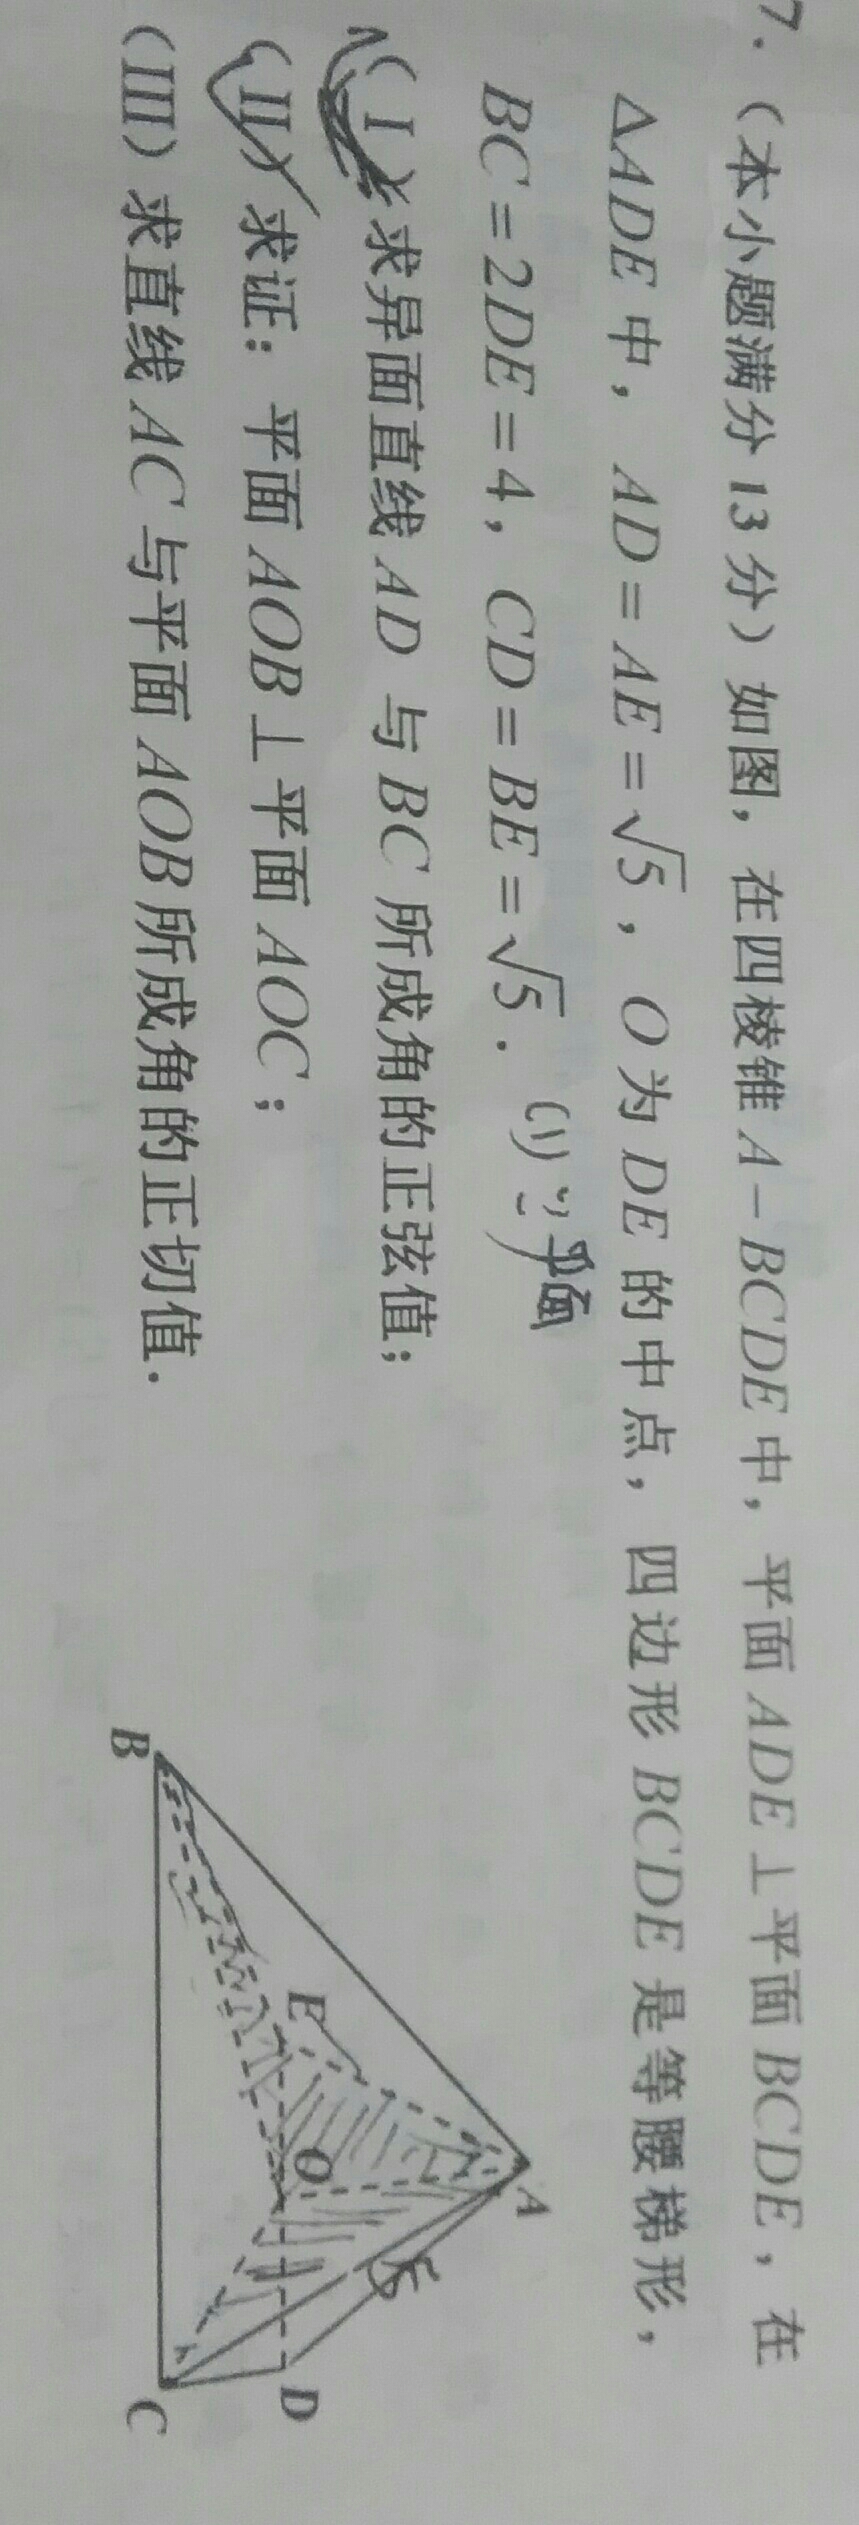 7.（本小题满分 13 分）如图，在四棱锥 A－BCDE 中，平面 ADE⊥平面 BCDE，在
△ADE 中，AD＝AE＝√5，O 为 DE 的中点，四边形 BCDE 是等腰梯形，
BC＝2DE＝4，CD＝BE＝√5．
(1) 平面
（Ⅰ）求异面直线 AD 与 BC 所成角的正弦值；
（Ⅱ）求证：平面 AOB⊥平面 AOC；
（Ⅲ）求直线 AC 与平面 AOB 所成角的正切值．
A
E
O
D
B
C